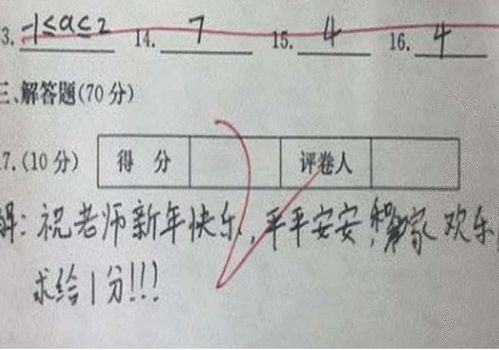 3. -1≤a≤2 14. 7 15. 4 16. 4
三、解答题(70分)
7.(10分) 得 分 评卷人
解: 祝老师新年快乐, 平平安安, 家欢乐
求给1分!!!